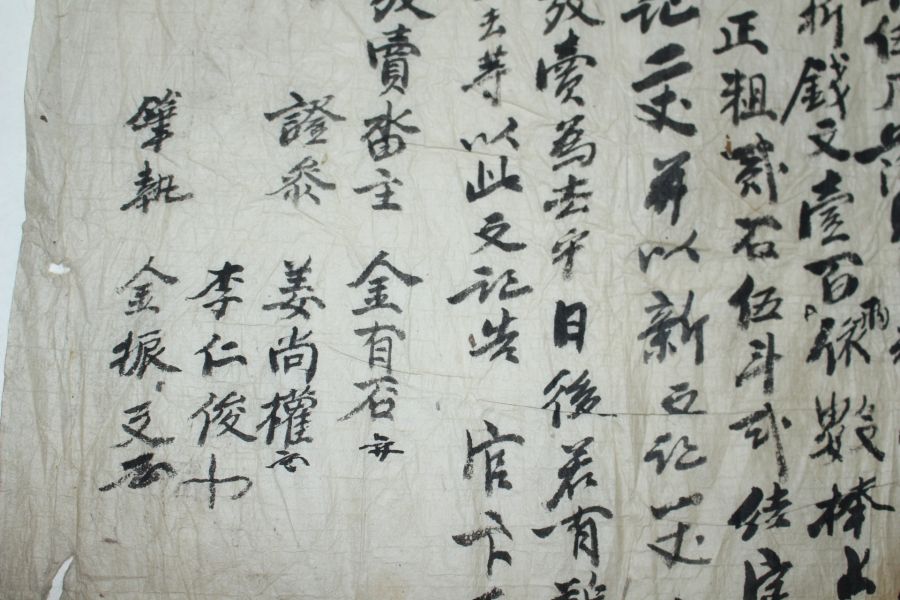 伍
折錢文壹百兩依數捧上
正租貳石伍斗
記二丈并以新文記一丈
放賣為去乎日後若有
去等以此文記告官卞
放賣畓主 金有石
證參 姜尚權
李仁俊
筆執 金振文